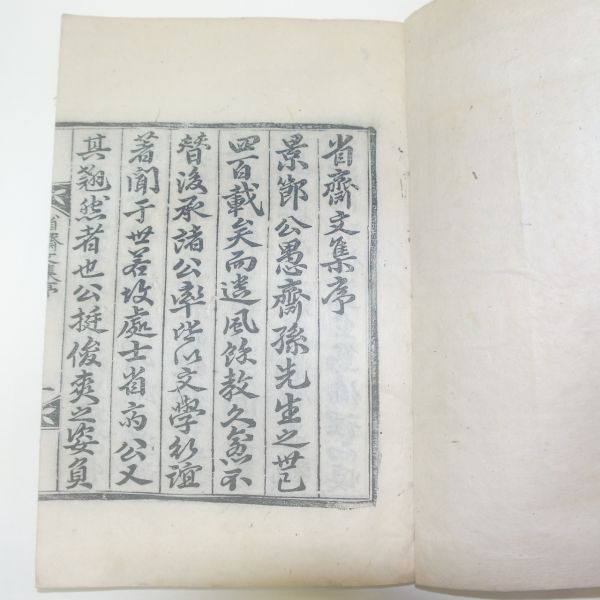 省齋文集序
景節公愚齋孫先生之世已
四百載矣而遺風餘教久愈不
替後承諸公率皆以文學行誼
著聞于世若故處士省齋公又
其翹然者也公挺俊爽之姿負
省齋文集序
一